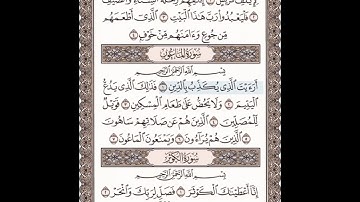 لِإِيلَٰفِ قُرَيْشٍ ۝ إِۦلَٰفِهِمْ رِحْلَةَ ٱلشِّتَآءِ وَٱلصَّيْفِ
۝ فَلْيَعْبُدُوا۟ رَبَّ هَٰذَا ٱلْبَيْتِ ۝ ٱلَّذِىٓ أَطْعَمَهُم
مِّن جُوعٍ وَءَامَنَهُم مِّنْ خَوْفٍۭ ۝
سُورَةُ المَاعُونِ
بِسْمِ ٱللَّهِ ٱلرَّحْمَٰنِ ٱلرَّحِيمِ
أَرَءَيْتَ ٱلَّذِى يُكَذِّبُ بِٱلدِّينِ ۝ فَذَٰلِكَ ٱلَّذِى يَدُعُّ
ٱلْيَتِيمَ ۝ وَلَا يَحُضُّ عَلَىٰ طَعَامِ ٱلْمِسْكِينِ ۝ فَوَيْلٌ
لِّلْمُصَلِّينَ ۝ ٱلَّذِينَ هُمْ عَن صَلَاتِهِمْ سَاهُونَ
۝ ٱلَّذِينَ هُمْ يُرَآءُونَ ۝ وَيَمْنَعُونَ ٱلْمَاعُونَ ۝
سُورَةُ الكَوْثَرِ
بِسْمِ ٱللَّهِ ٱلرَّحْمَٰنِ ٱلرَّحِيمِ
إِنَّآ أَعْطَيْنَٰكَ ٱلْكَوْثَرَ ۝ فَصَلِّ لِرَبِّكَ وَٱنْحَرْ ۝